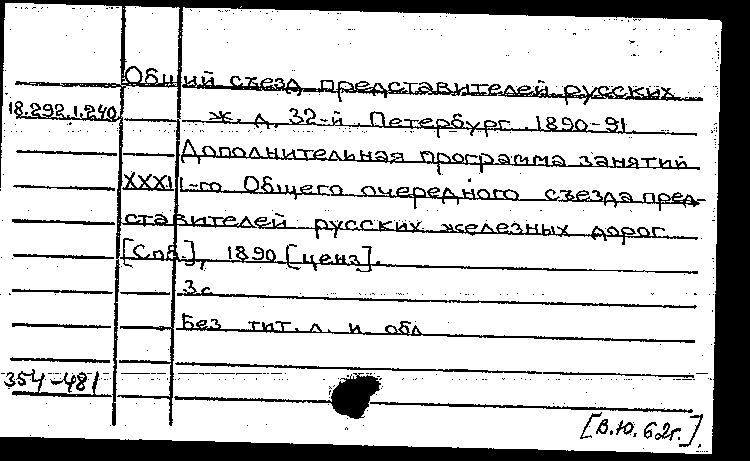 Общий съезд представителей русских
18.292.1.240 ж. д. 32-й. Петербург. 1890-91.
Дополнительная программа занятий
XXXII-го Общего очередного съезда пред-
ставителей русских железных дорог.
[Спб.], 1890 [ценз].
3с
Без тит. л. и обл
354-481
[В.Ю. 62г.].